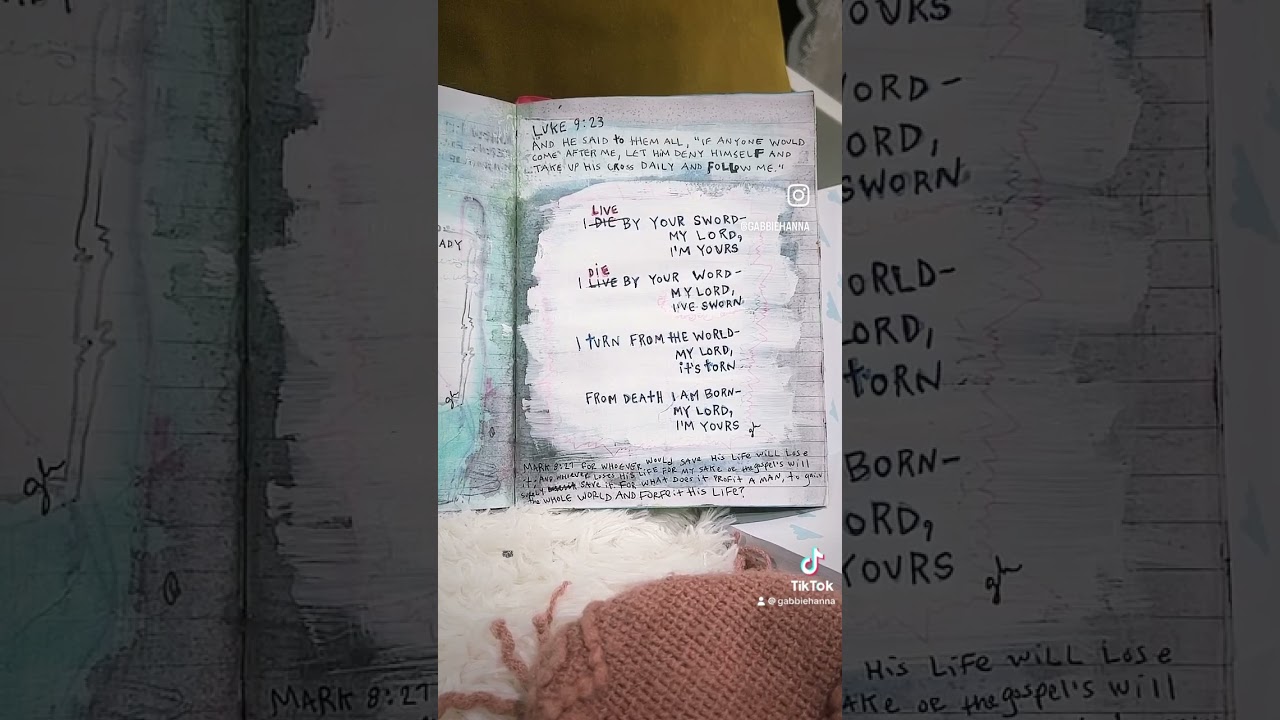 LUKE 9:23
"AND HE SAID to tHEM ALL, "IF ANYONE WOULD
COME AFTER ME, LET HIM DENY HIMSELF AND
TAKE UP HIS CROSS DAILY AND FOLLOW ME."
LIVE
I DIE BY YOUR SWORD-
MY LORD,
I'M YOURS
DIE
I LIVE BY YOUR WORD-
MY LORD,
I'VE SWORN
I tURN FROM tHE WORLD-
MY LORD,
it's tORN
FROM DEAtH I AM BORN-
MY LORD,
I'M YOURS gh
MARK 8:27 FOR WHOEVER WOULD SAVE His LiFE WiLL LOSE
it, AND WHOEVER LOSES His LIFE FOR MY SAKE OR the gospel's will
SAVE it. FOR WHAT DOES it PROFIT A MAN, to gain
the WHOLE WORLD AND FORFEit His LIFE?
@GABBIEHANNA
TikTok
@gabbiehanna
ADY
gh
YOURS
WORD-
ORD,
SWORN
ORLD-
LORD,
tORN
BORN-
ORD,
YOURS
gh
His LiFE WiLL LOSE
AKE OR the gospel's will
MARK 8:27
gh